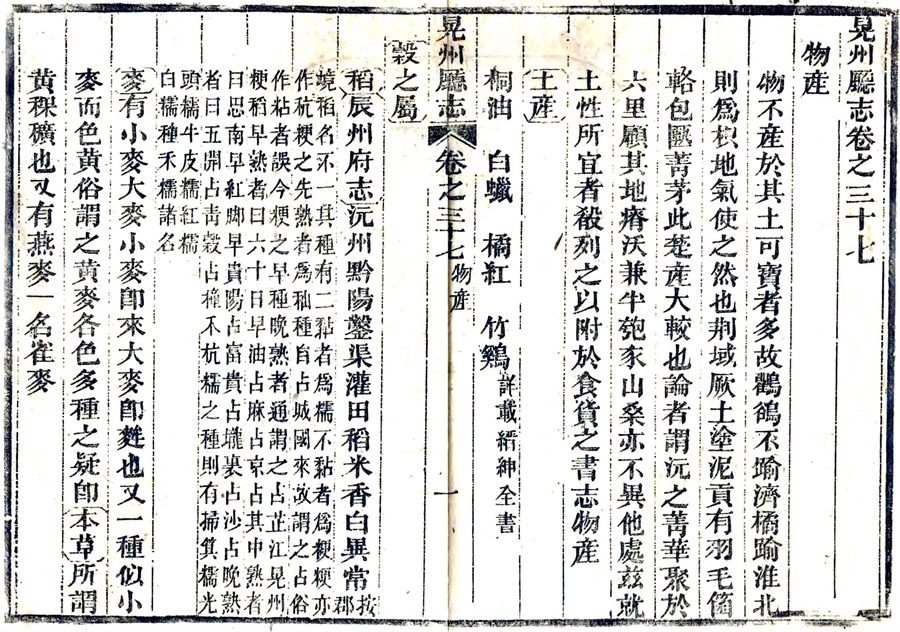 晃州廳志卷之三十七
物産
物不産於其土可寶者多故鸜鵒不踰濟橘踰淮北
則爲枳地氣使之然也荆域厥土塗泥貢有羽毛箘
簵包匭菁茅此楚産大較也論者謂沅之菁華聚於
六里顧其地瘠沃兼半匏豕山桑亦不異他處茲就
土性所宜者殽列之以附於食貨之書志物産
土産
桐油 白蠟 橘紅 竹鷄詳載縉紳全書
晃州廳志 卷之三十七 物産 一
穀之屬
稻辰州府志沅州黔陽鑿渠灌田稻米香白異常按郡
境稻名不一其種有二黏者爲糯不黏者爲粳粳亦
作秔粳之先熟者爲秈種自占城國來故謂之占俗
作粘者誤今粳之早種晚熟者通謂之占芷江晃州
粳稻早熟者曰六十日早油占麻占京占其中熟者
曰思南早紅脚早貴陽占富貴占壠裏占沙占晚熟
者曰五開占青穀占撞禾秔糯之種則有掃箕糯光
頭糯牛皮糯紅糯
白糯種禾糯諸名
麥有小麥大麥小麥卽來大麥卽麰也又一種似小
麥而色黃俗謂之黃麥各色多種之疑卽本草所謂
黃稞礦也又有燕麥一名雀麥